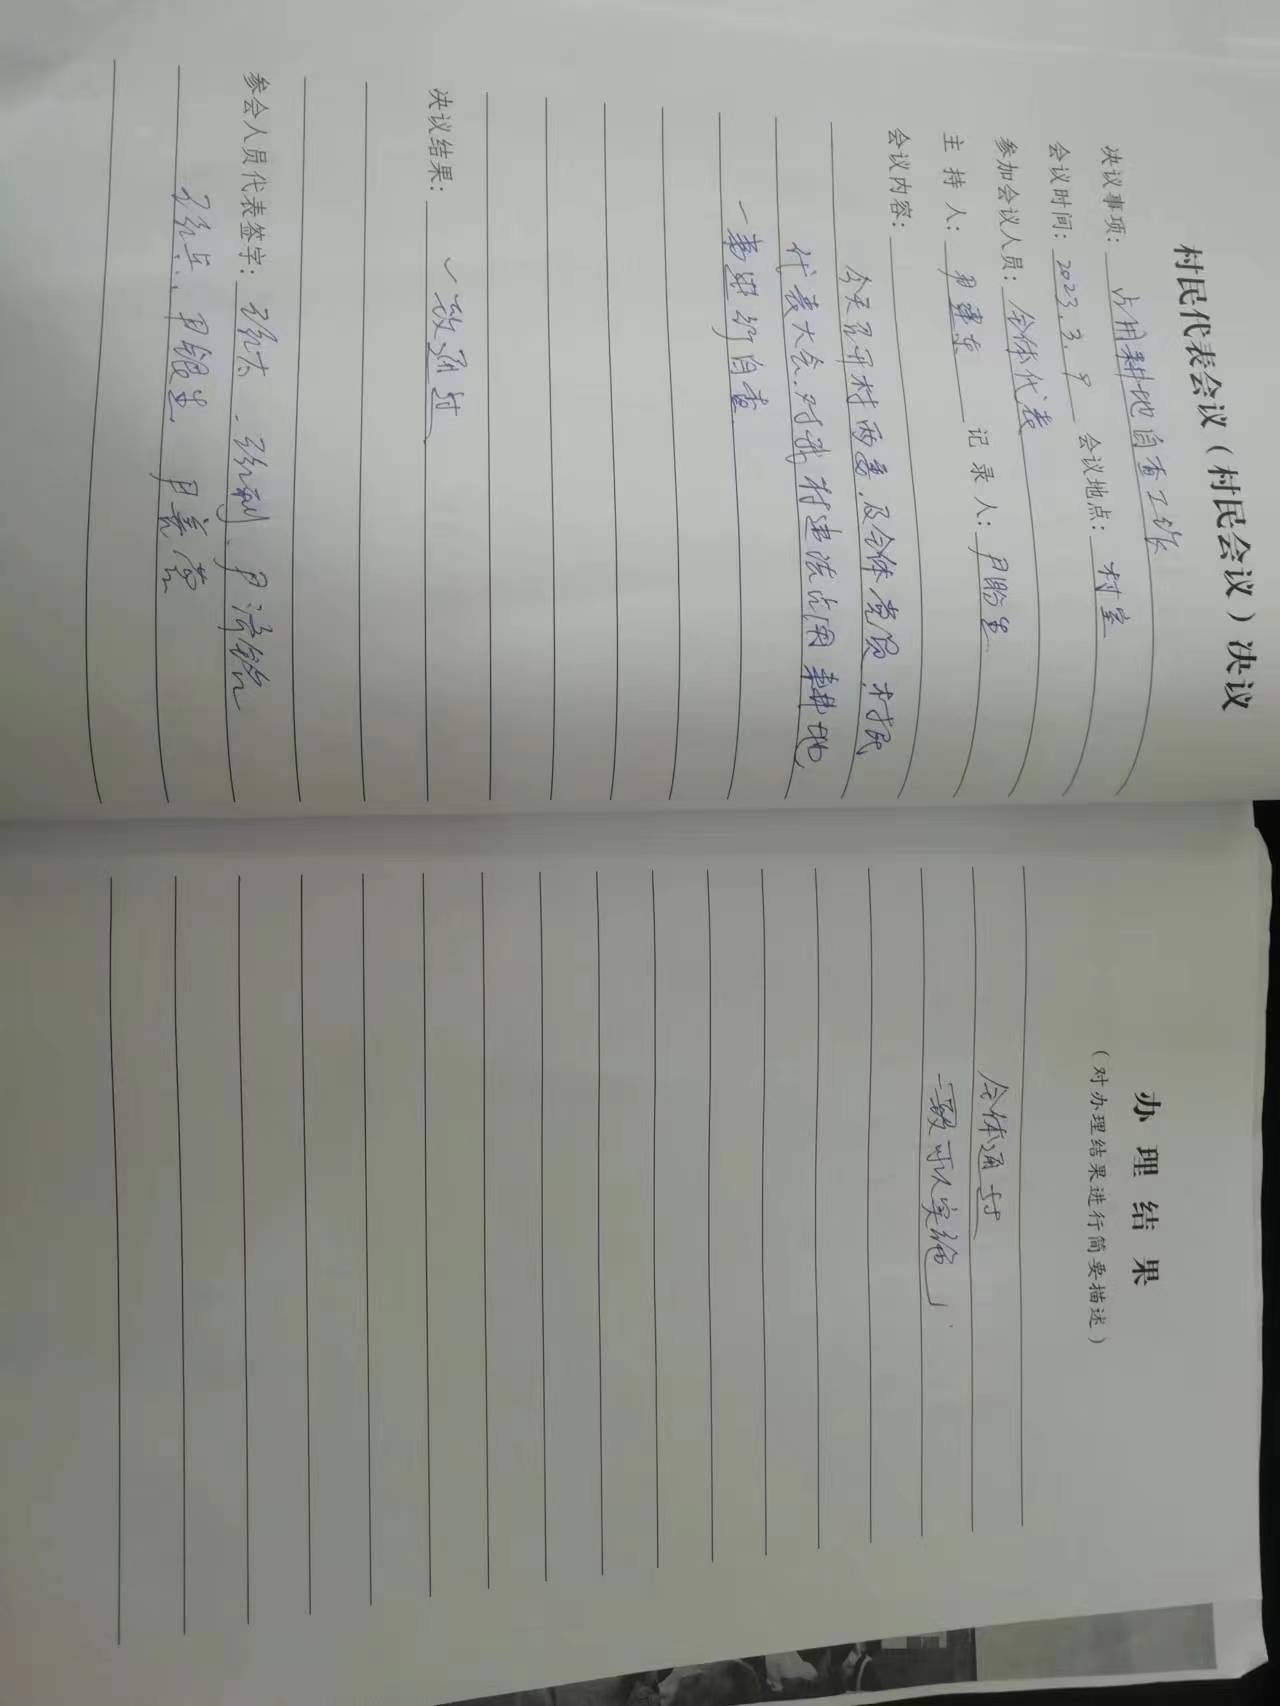 村民代表会议（村民会议）决议
决议事项：占用耕地自查工作
会议时间：2023.3.9 会议地点：村室
参加会议人员：全体代表
主持人：尹建东 记录人：尹盼生
会议内容：
今天召开村两委及全体党员.村民
代表大会.对我村违法占用耕地
一事进行自查
决议结果：一致通过
参会人员代表签字：
办理结果
（对办理结果进行简要描述）
全体通过
一致可以实施